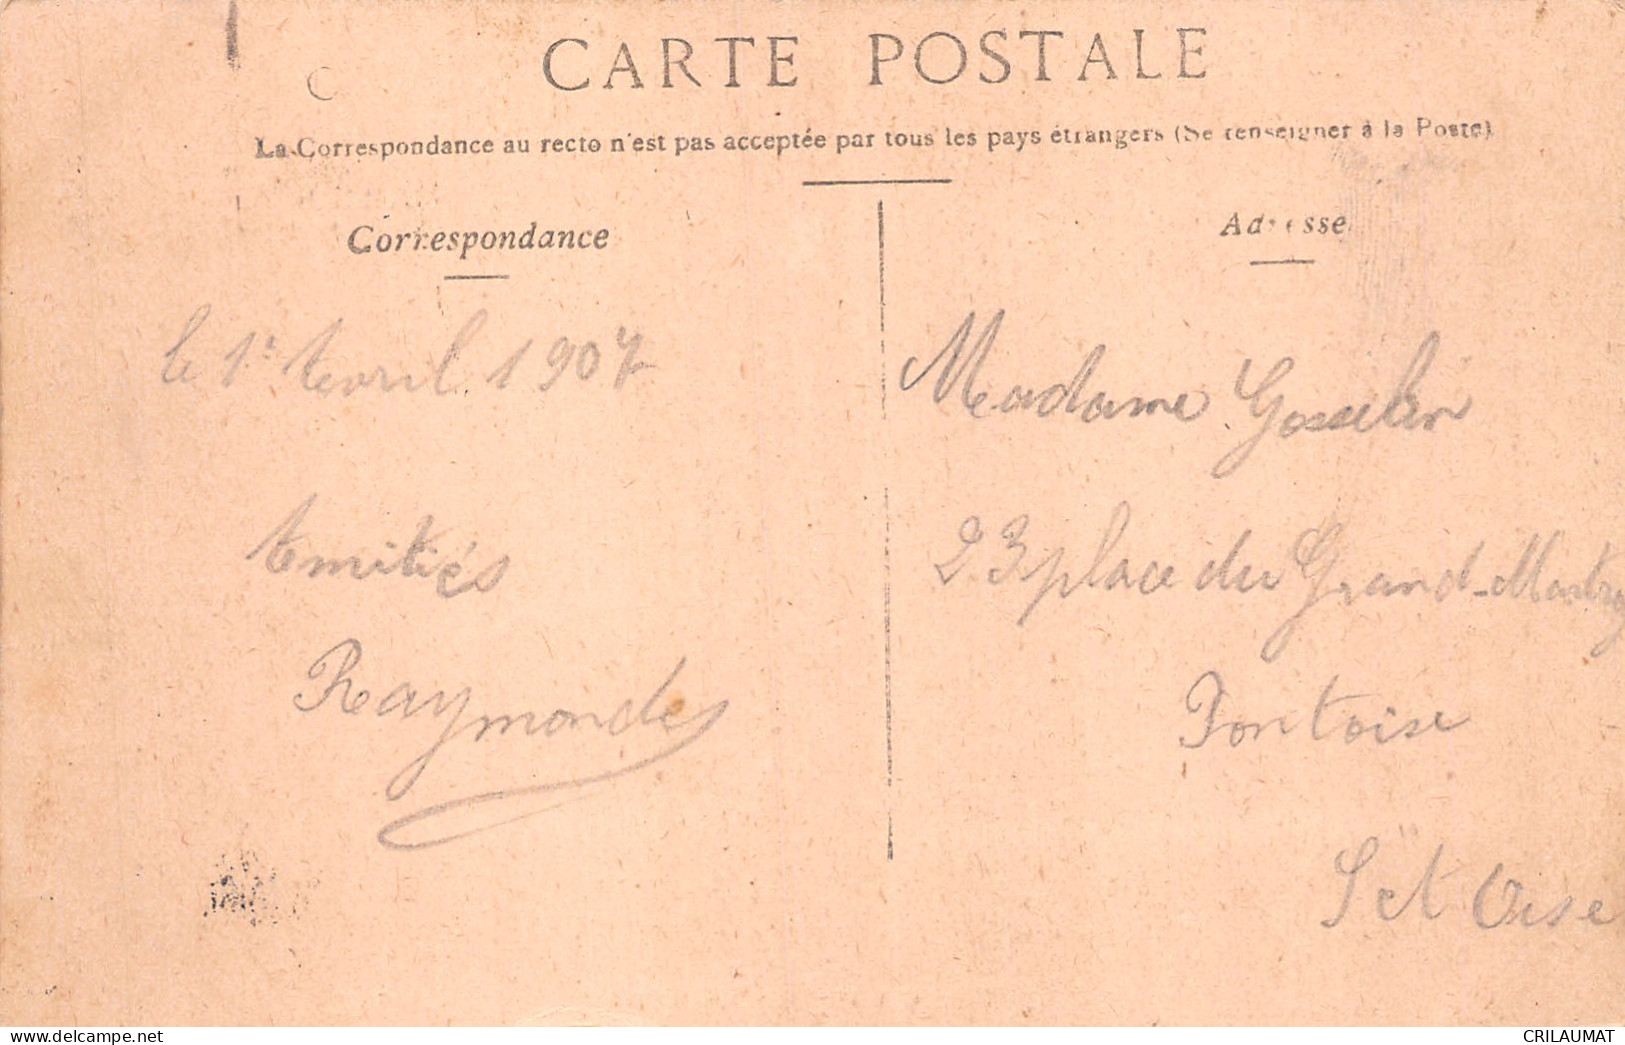 CARTE POSTALE
La Correspondance au recto n'est pas acceptée par tous les pays étrangers (Se renseigner à la Poste)
Correspondance
Adresse
le 1er Avril 1907
Amitiés
Raymonde
Madame Gosselin
23 place du Grand-Martroy
Pontoise
S et Oise
CRILAUMAT